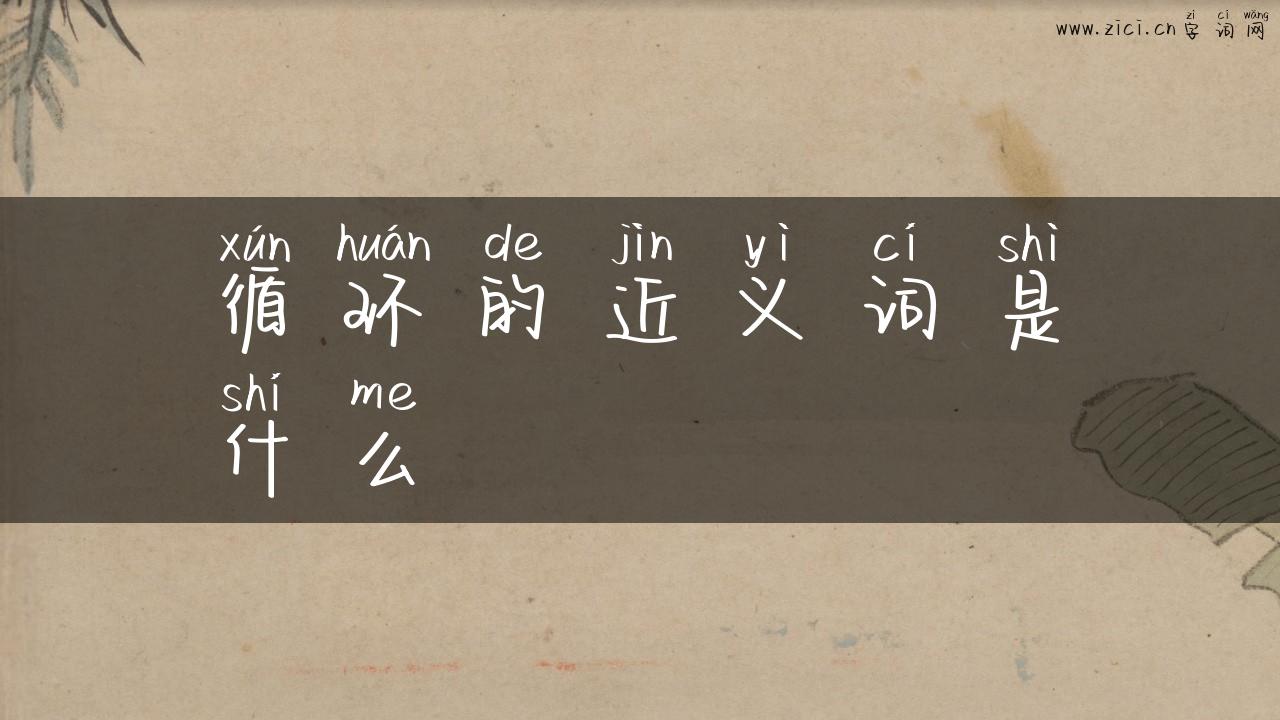 zì cí wǎng
www.zici.cn 字词网
xún huán de jìn yì cí shì
循环的近义词是
shí me
什么